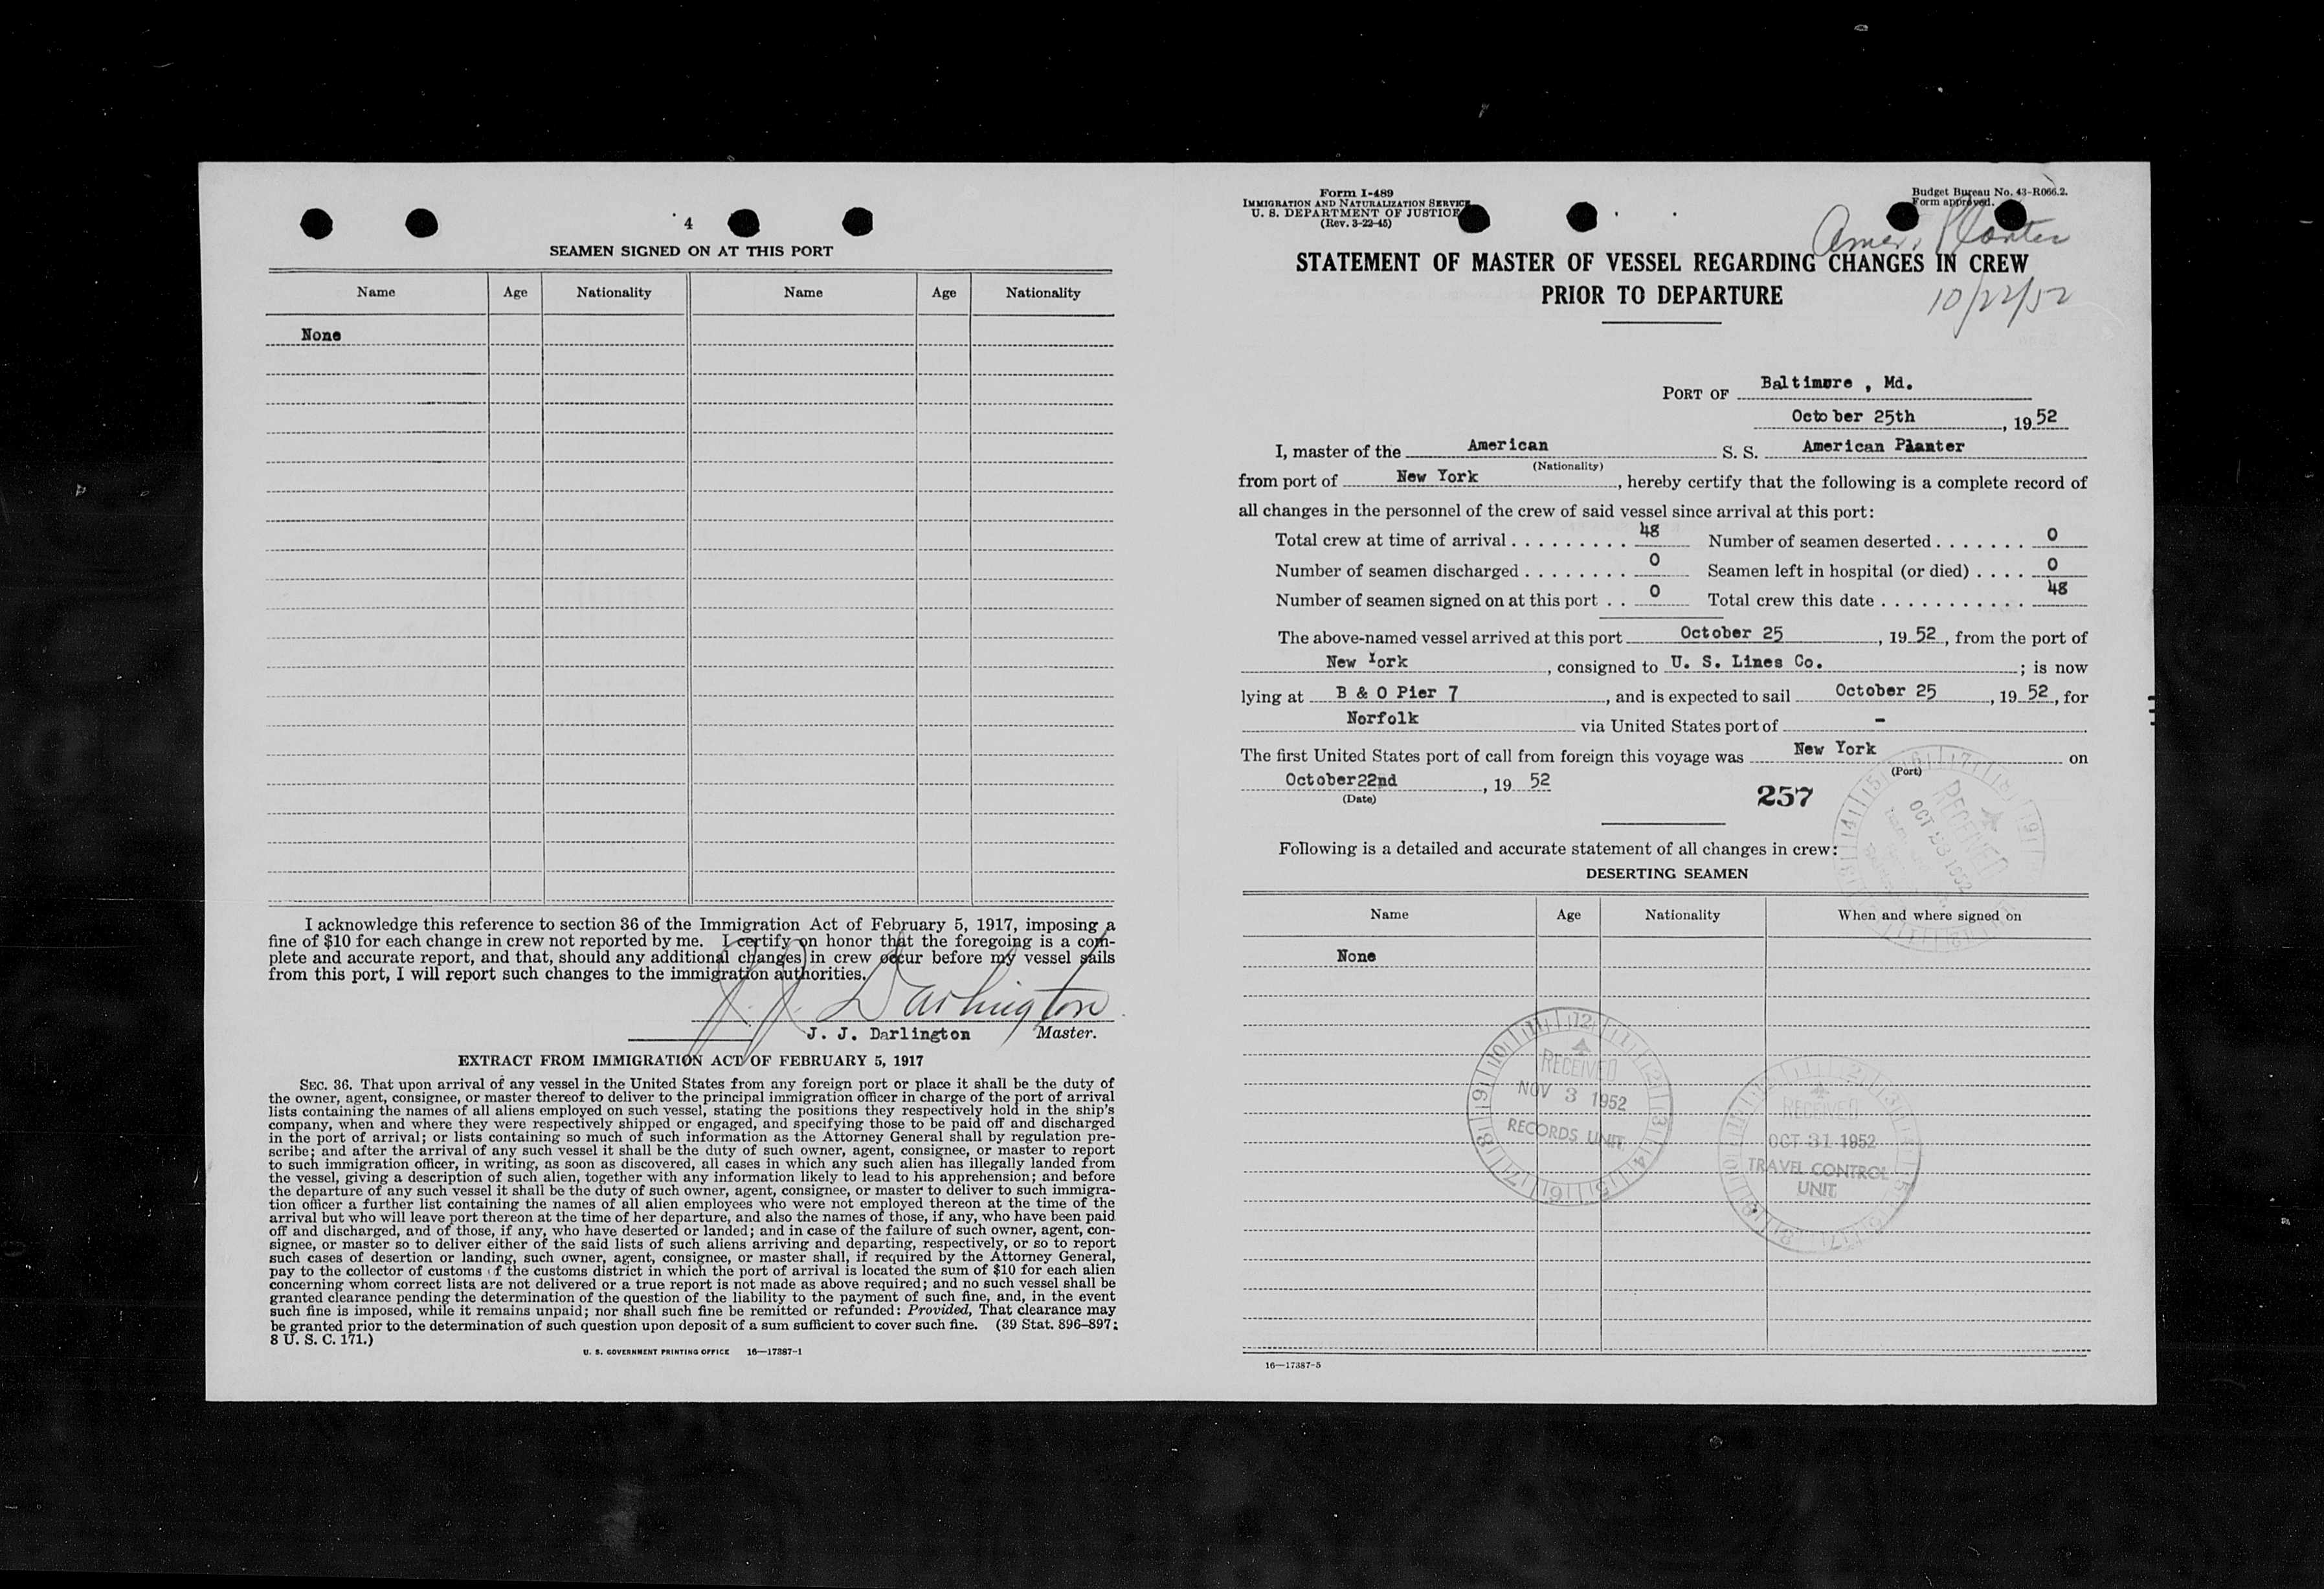 4
SEAMEN SIGNED ON AT THIS PORT
Name Age Nationality Name Age Nationality
None
I acknowledge this reference to section 36 of the Immigration Act of February 5, 1917, imposing a
fine of $10 for each change in crew not reported by me. I certify on honor that the foregoing is a com-
plete and accurate report, and that, should any additional changes in crew occur before my vessel sails
from this port, I will report such changes to the immigration authorities.
J. J. Darlington
J. J. Darlington Master.
EXTRACT FROM IMMIGRATION ACT OF FEBRUARY 5, 1917
SEC. 36. That upon arrival of any vessel in the United States from any foreign port or place it shall be the duty of
the owner, agent, consignee, or master thereof to deliver to the principal immigration officer in charge of the port of arrival
lists containing the names of all aliens employed on such vessel, stating the positions they respectively hold in the ship's
company, when and where they were respectively shipped or engaged, and specifying those to be paid off and discharged
in the port of arrival; or lists containing so much of such information as the Attorney General shall by regulation pre-
scribe; and after the arrival of any such vessel it shall be the duty of such owner, agent, consignee, or master to report
to such immigration officer, in writing, as soon as discovered, all cases in which any such alien has illegally landed from
the vessel, giving a description of such alien, together with any information likely to lead to his apprehension; and before
the departure of any such vessel it shall be the duty of such owner, agent, consignee, or master to deliver to such immigra-
tion officer a further list containing the names of all alien employees who were not employed thereon at the time of the
arrival but who will leave port thereon at the time of her departure, and also the names of those, if any, who have been paid
off and discharged, and of those, if any, who have deserted or landed; and in case of the failure of such owner, agent, con-
signee, or master so to deliver either of the said lists of such aliens arriving and departing, respectively, or so to report
such cases of desertion or landing, such owner, agent, consignee, or master shall, if required by the Attorney General,
pay to the collector of customs of the customs district in which the port of arrival is located the sum of $10 for each alien
concerning whom correct lists are not delivered or a true report is not made as above required; and no such vessel shall be
granted clearance pending the determination of the question of the liability to the payment of such fine, and, in the event
such fine is imposed, while it remains unpaid; nor shall such fine be remitted or refunded: Provided, That clearance may
be granted prior to the determination of such question upon deposit of a sum sufficient to cover such fine. (39 Stat. 896–897;
8 U. S. C. 171.)
U. S. GOVERNMENT PRINTING OFFICE 16—17387-1
Form I-489
IMMIGRATION AND NATURALIZATION SERVICE
U. S. DEPARTMENT OF JUSTICE
(Rev. 3-22-45)
Budget Bureau No. 43-R066.2.
Form approved.
Amer. Planter
STATEMENT OF MASTER OF VESSEL REGARDING CHANGES IN CREW
PRIOR TO DEPARTURE
10/22/52
PORT OF Baltimore , Md.
October 25th , 19 52
I, master of the American S. S. American Planter
(Nationality)
from port of New York , hereby certify that the following is a complete record of
all changes in the personnel of the crew of said vessel since arrival at this port:
Total crew at time of arrival . . . . . . . . . 48 Number of seamen deserted . . . . . . . 0
Number of seamen discharged . . . . . . . . 0 Seamen left in hospital (or died) . . . . 0
Number of seamen signed on at this port . . 0 Total crew this date . . . . . . . . . . . . 48
The above-named vessel arrived at this port October 25 , 19 52 , from the port of
New York , consigned to U. S. Lines Co. ; is now
lying at B & O Pier 7 , and is expected to sail October 25 , 19 52 , for
Norfolk via United States port of -
The first United States port of call from foreign this voyage was New York on
(Port)
October22nd , 19 52
(Date)
257
RECEIVED
OCT 23 1952
Following is a detailed and accurate statement of all changes in crew:
DESERTING SEAMEN
Name Age Nationality When and where signed on
None
RECEIVED
NOV 3 1952
RECORDS UNIT
RECEIVED
OCT 31 1952
TRAVEL CONTROL
UNIT
16—17387-5